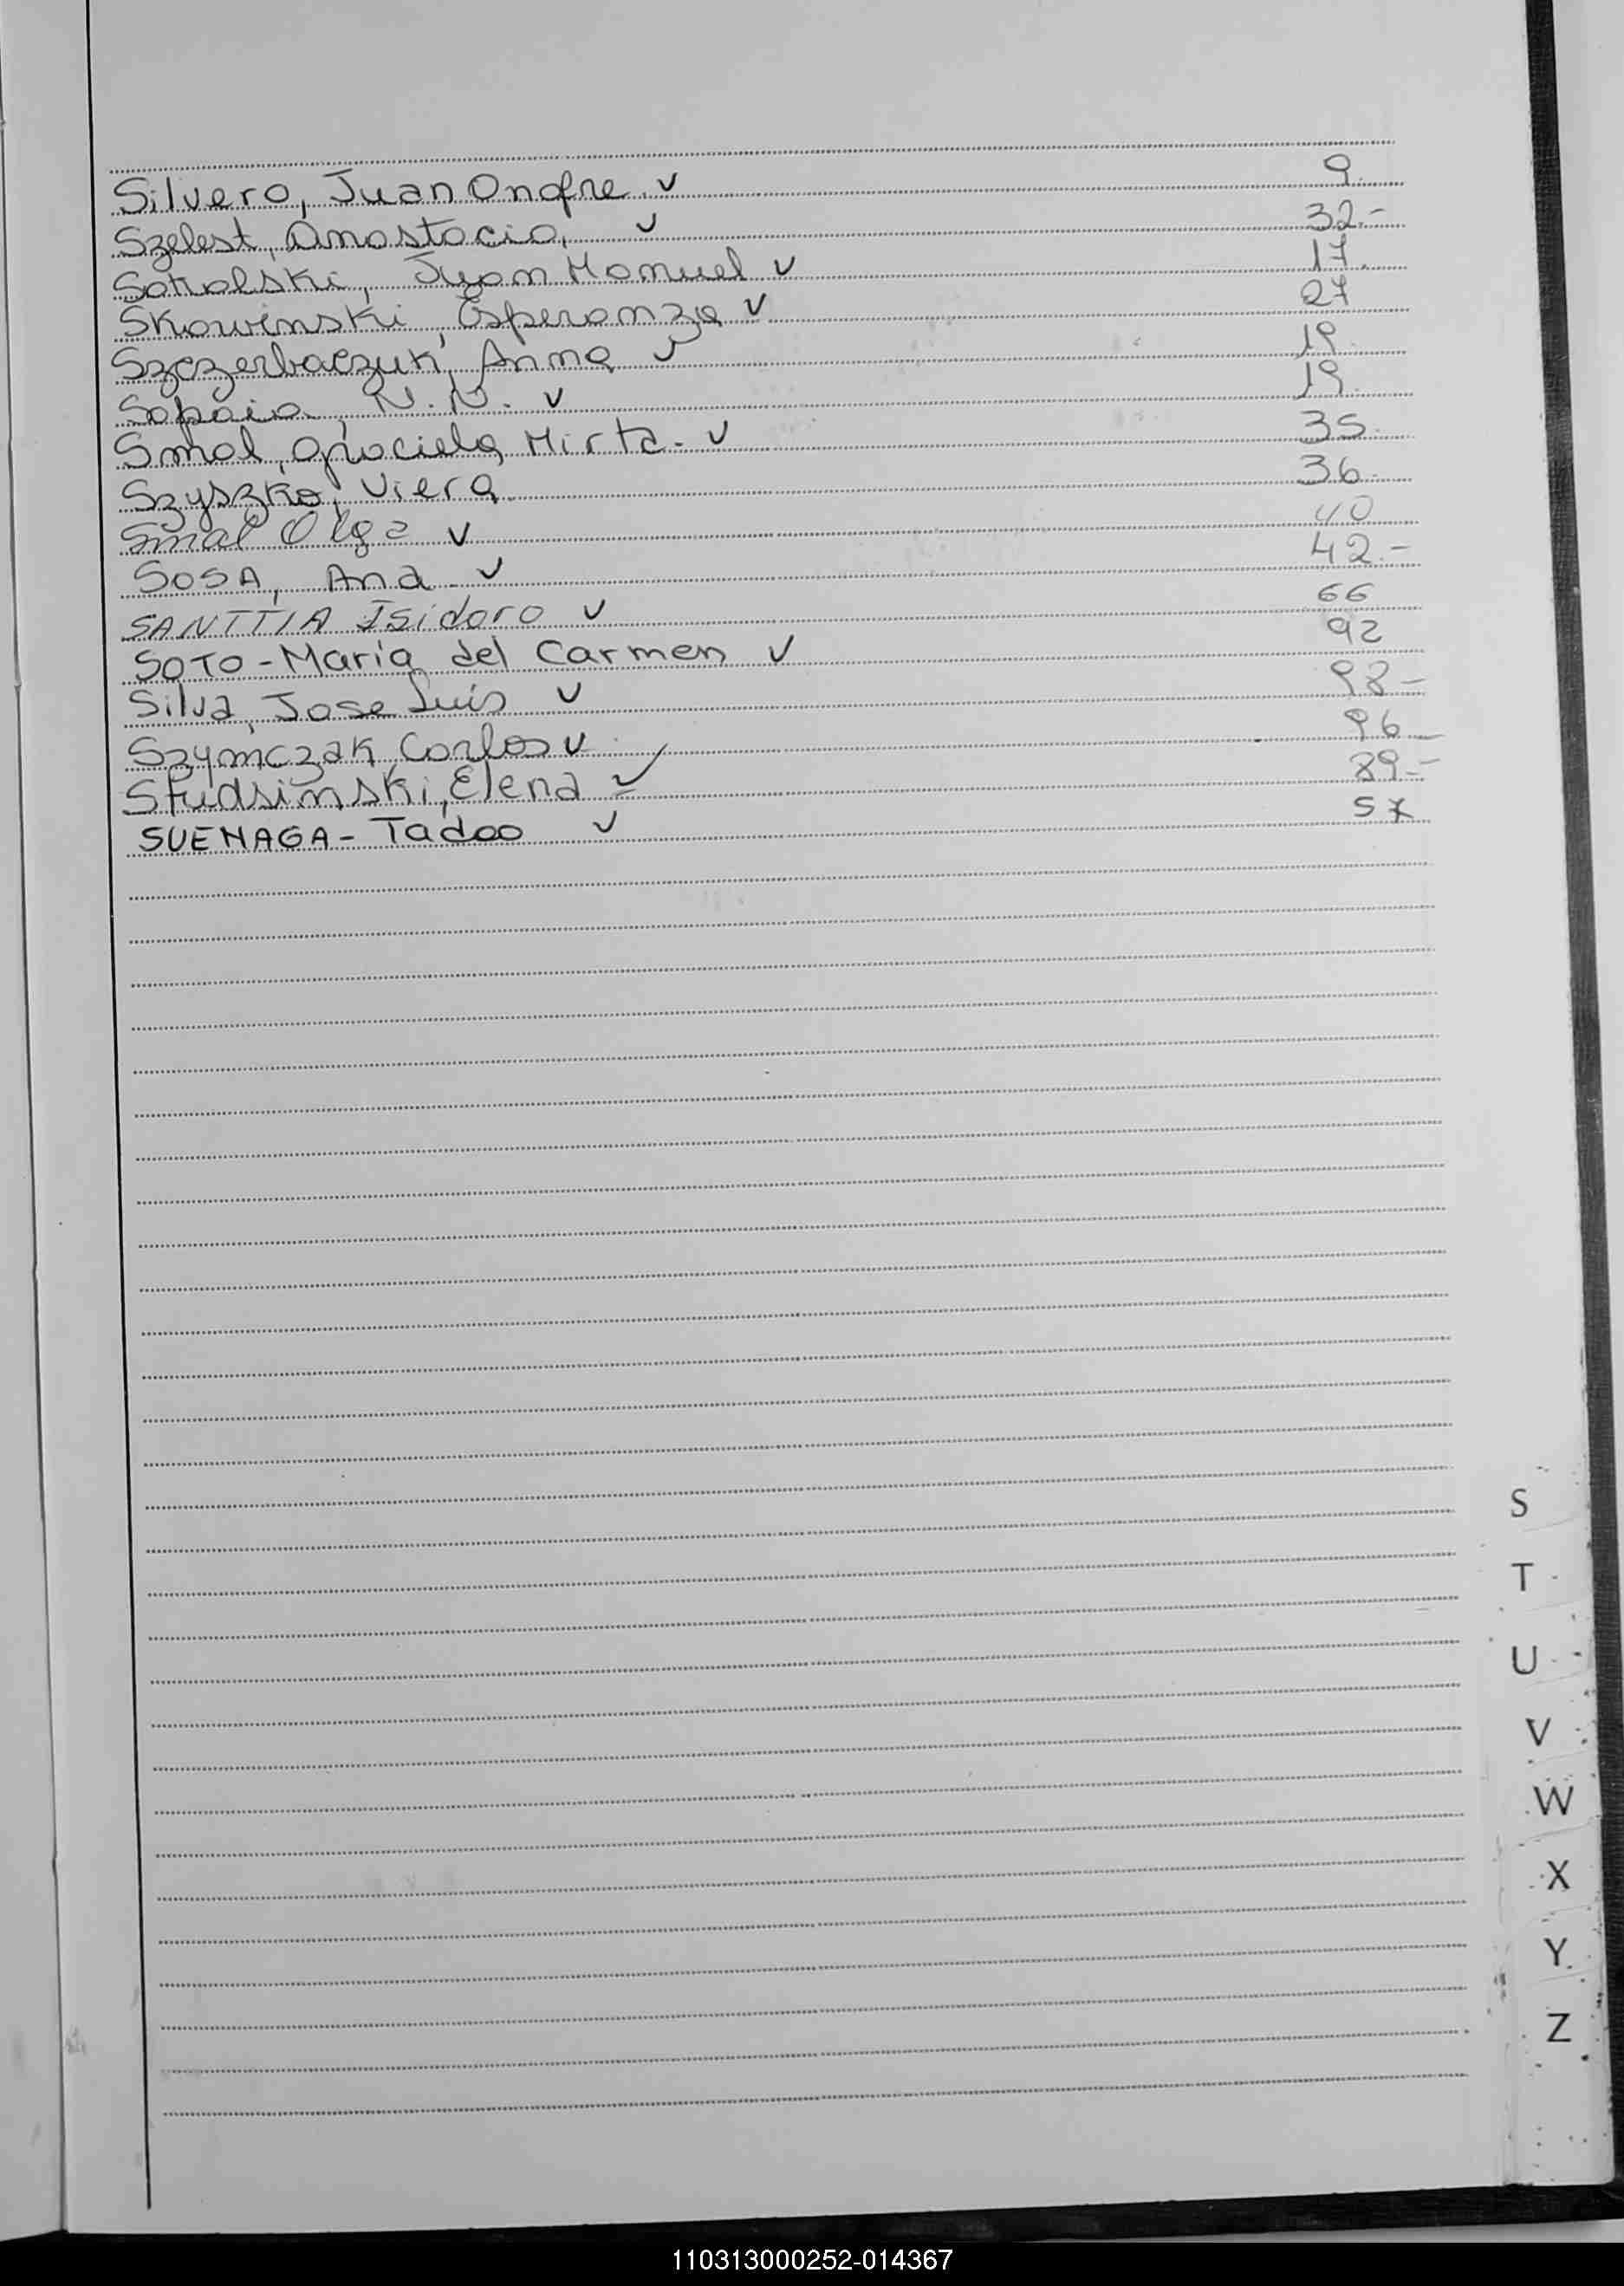 Silvero, Juan Onofre. v 9.
Szelest, Anastacia, v 32.-
Sokolski, Juan Manuel v 17.
Skowinski, Esperanza v 27
Szczerbaczuk, Anna v 19.
N. N. v 19.
Smal, Graciela Mirta - v 35.
Szyszko, Viera 36.
Smal Olga v 40
SOSA, Ana - v 42.-
SANTTIA Isidoro v 66
SOTO - Maria del Carmen v 92
Silva, Jose Luis v 98-
Szymczak, Carlos v 96-
Studsinski, Elena v 89.-
SUENAGA - Tadao v
S
T
U
V
W
X
Y
Z
110313000252-014367